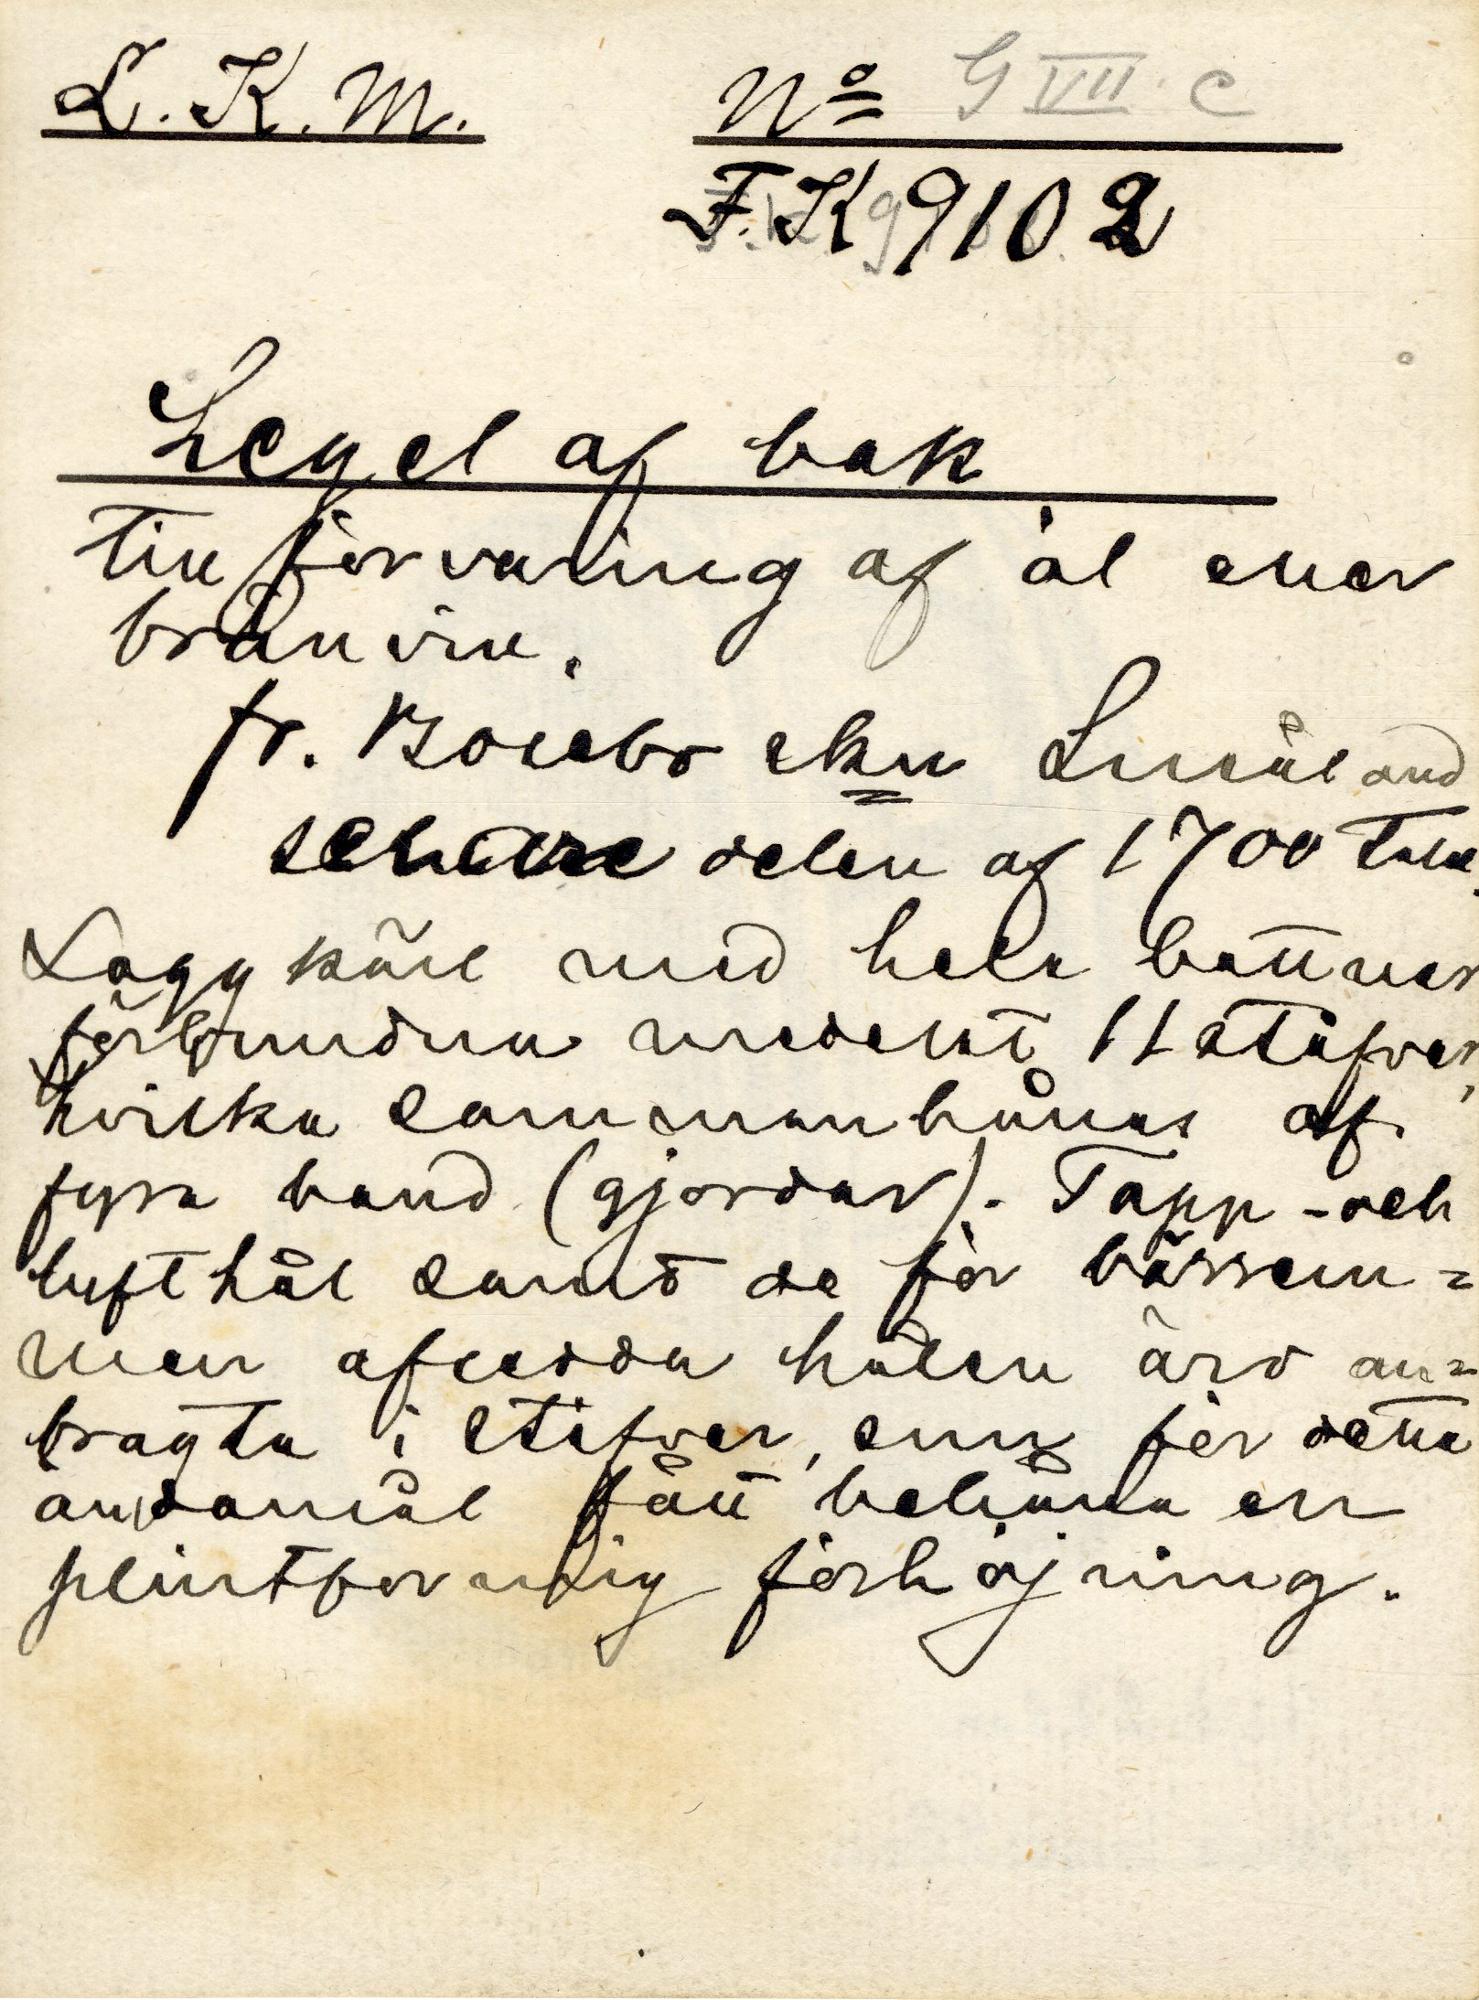 L. K. M. No G VII c
F. K 9102
Legel af bok
till förvaring af öl eller
bränvin.
fr. Bosebo skn Småland
senare delen af 1700 talet.
Laggkärl med hela bottnar
förbundna medelst 11 stäfver,
hvilka sammanhållas af
fyra band (gjordar). Tapp- och
lufthål samt de för bärrem=
men afsedda hålen äro an=
bragta i stäfver, som för detta
ändamål fått behålla en
plintformig förhöjning.